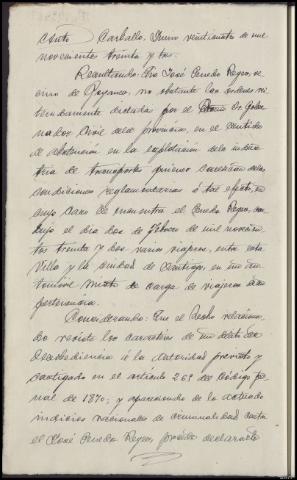 Auto Carballo, Enero veinticuatro de mil
novecientos treinta y tres.
Resultando: Que José Penedo Reyes, ve
cino de Joyanca, no obstante las órdenes re
iteradamente dictada por el Sr. Gober
nador Civil de la provincia, en el sentido
de abstención en la explotación de la indus
tria de transportes quienes carecían de las
condiciones reglamentarias á tal efecto, en
cuyo caso se encuentra el Penedo Reyes, con
dujo el dia dos de Febrero de mil novecien
tos treinta y dos varios viajeros, entre esta
Villa y la ciudad de Santiago, en un au
tomóvil mixto de carga de viajeros de su
pertenencia.
Considerando: Que el hecho relaciona
do reviste los caracteres de un delito de
desobediencia á la autoridad previsto y
castigado en el artículo 265 del Código pe
nal de 1870; y apareciendo de lo actuado
indicios racionales de criminalidad contra
el José Penedo Reyes, procede declararlo